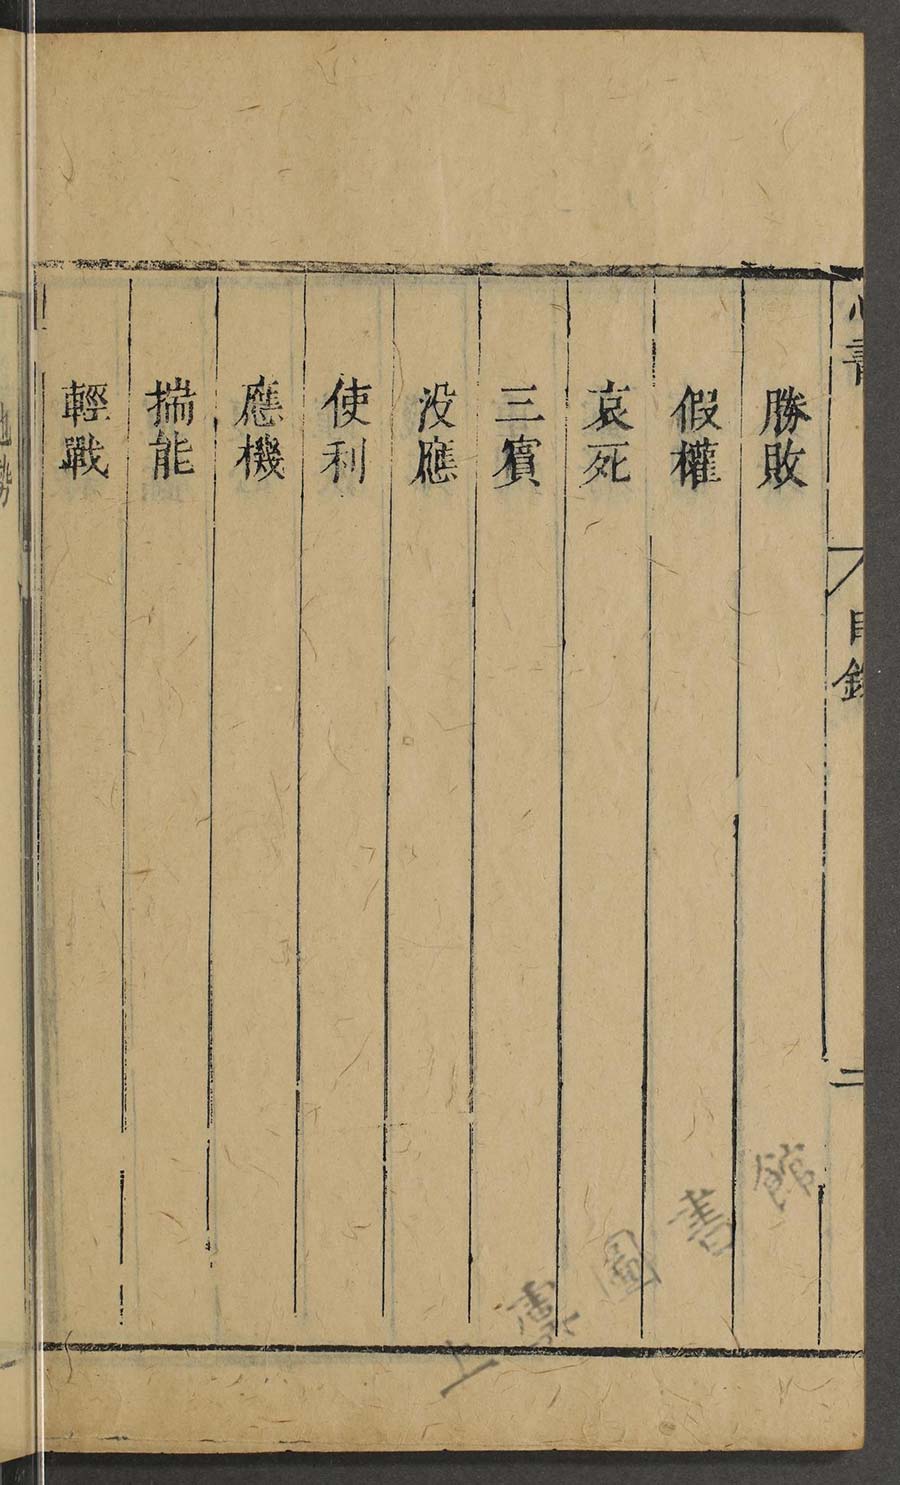 心書
目錄
二
勝敗
假權
哀死
三賓
没應
使利
應機
揣能
輕戰
地勢
上虞圖書館